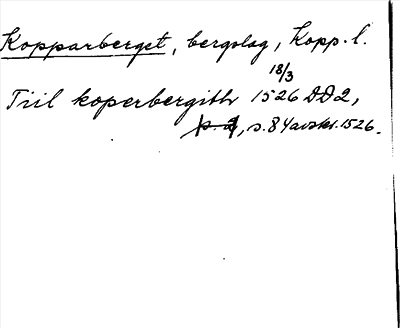 Kopparberget, bergslag, Kopp. l.
18/3
Tiil koperbergith 1526 DD2,
p. 2, s. 84 avskr. 1526.